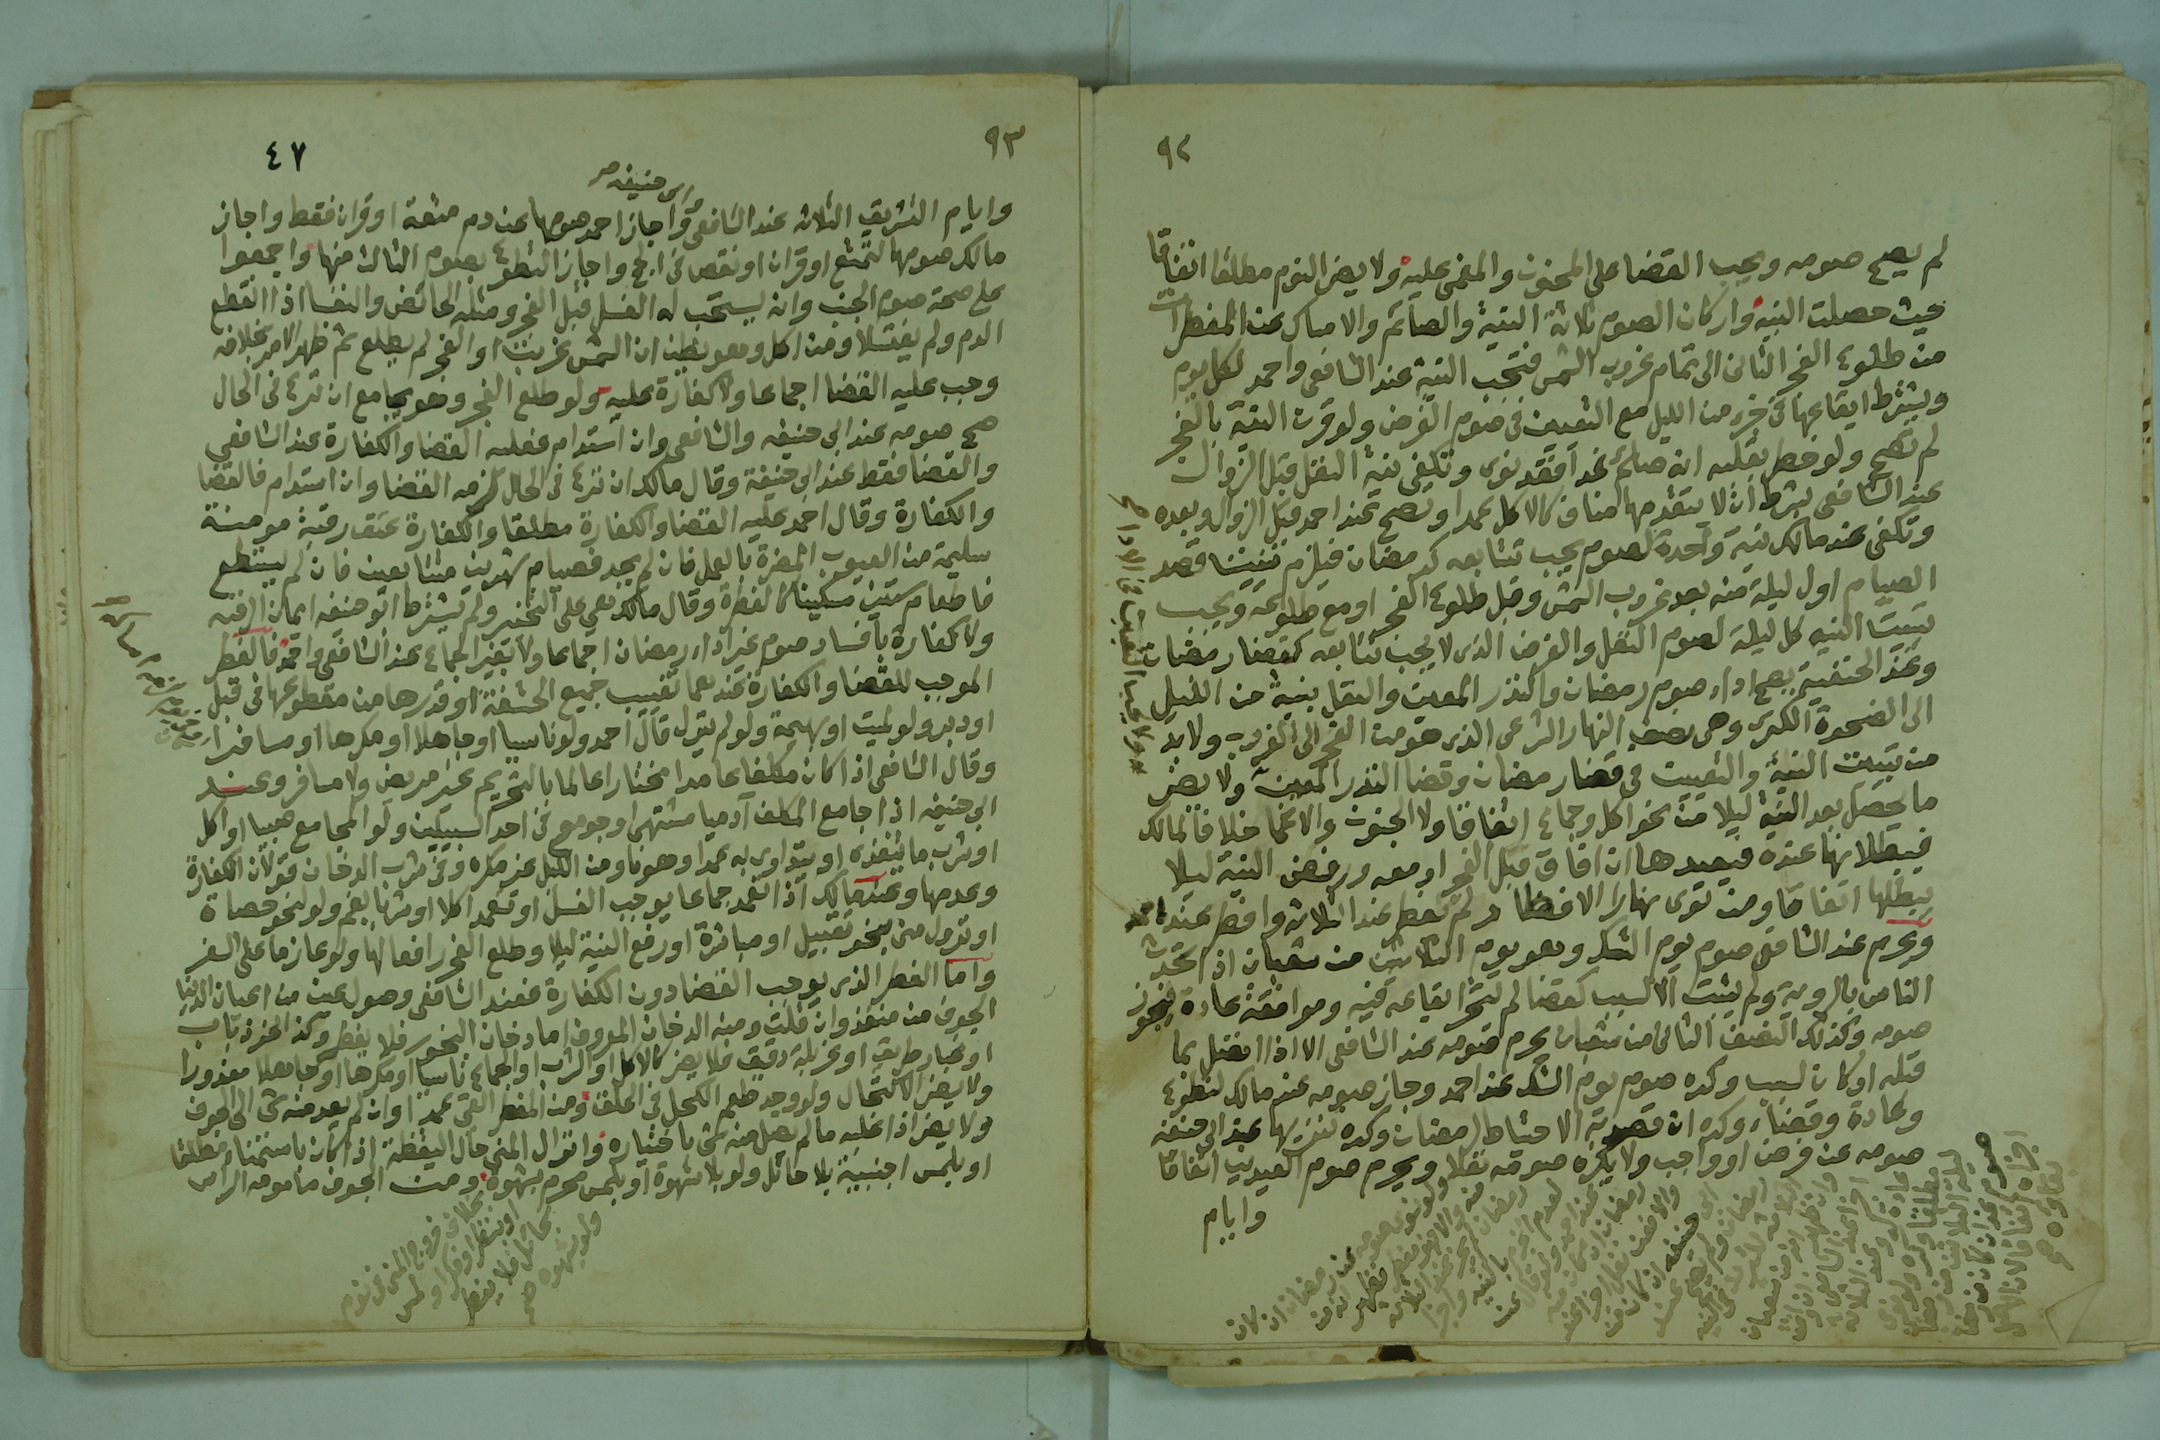 ٩٢
لم يصح صومه ويجب القضا على المجنون والمغمى عليه ولا يضر النوم مطلقا اتفاقا
حيث حصلت النية واركان الصوم ثلاثة النية والصائم والامساك عن المفطرات
من طلوع الفجر الثانى الى تمام غروب الشمس فتجب النية عند الشافعى واحمد لكل يوم
ويشترط ايقاعها فى جزء من الليل مع التعيين فى صوم الفرض ولو قرن النية بالفجر
لم تصح ولو خطر بقلبه انه صائم غدا فقد نوى وتكفى نية النفل قبل الزوال
عند الشافعى بشرط ان لا يتقدمها مناف كالاكل عمدا وتصح عند احمد قبل الزوال وبعده
وتكفى عند مالك نية واحدة لصوم يجب تتابعه كرمضان فيلزم تبييت قصد
الصيام اول ليلة منه بعد غروب الشمس وقبل طلوع الفجر او مع طلوعه ويجب
تبييت النيه كل ليلة لصوم النفل والفرض الذى لا يجب تتابعه كقضا رمضان
وعند الحنفية يصح اداء صوم رمضان والنذر المعين والنفل بنية من الليل
الى الضحوة الكبرى وهى نصف النهار الشرعى الذى هو من الفجر الى الغروب ولا بد
من تبييت النية والتعيين فى قضا رمضان وقضا النذر المعين ولا يضر
ما يحصل بعد النية ليلا من نحو اكل وجماع اتفاقا ولا الجنون والاغما خلافا لمالك
فيبطلانها عنده فيعيدها ان افاق قبل الفجر او معه ورفض النية ليلا
يبطلها اتفاقا ومن نوى نهارا الافطار لم يفطر عند الثلاثة وافطر عند احمد
ويحرم عند الشافعى صوم يوم الشك وهو يوم الثلاثين من شعبان اذا تحدث
الناس بالروية ولم يثبت الا لسبب كقضا لم يتحر ايقاعه فيه وموافقة عادة فيجوز
صومه وكذلك النصف الثانى من شعبان يحرم صومه عند الشافعى الا اذا اتصل بما
قبله او كان لسبب وكره صوم يوم الشك عند احمد وجاز صومه عند مالك لتطوع
وعادة وقضاء وكره ان قصد به الاحتياط لرمضان وكره تنزيها عند ابى حنيفه
صومه عن فرض او واجب ولا يكره صومه نفلا ويحرم صوم العيدين اتفاقا
وايام
ولا يجب التعيين فى الاداء
٩٣
٤٧
وابى حنيفه صح
وايام التشريق الثلاثه عند الشافعى واجاز احمد صومها عن دم متعة او قران فقط واجاز
مالك صومها لتمتع او قران او نقص فى الحج واجاز التطوع بصوم الثالث منها واجمعوا
على صحة صوم الجنب وانه يستحب له الغسل قبل الفجر ومثله الحائض والنفسا اذا انقطع
الدم ولم يغتسلا ومن اكل وهو يظن ان الشمس غربت او الفجر لم يطلع ثم ظهر الامر بخلافه
وجب عليه القضا اجماعا ولا كفارة عليه ولو طلع الفجر وهو يجامع ان نزع فى الحال
صح صومه عند ابى حنيفه والشافعى وان استدام فعليه القضا والكفارة عند الشافعى
والقضا فقط عند ابى حنيفة وقال مالك ان نزع فى الحال لزمه القضا وان استدام فالقضا
والكفارة وقال احمد عليه القضا والكفارة مطلقا والكفارة عتق رقبة مومنة
سليمة من العيوب المضرة بالعمل فان لم يجد فصيام شهرين متتابعين فان لم يستطع
فاطعام ستين مسكينا كالفطرة وقال مالك هي على التخيير ولم يشترط ابو حنيفه ايمان الرقبه
ولا كفارة بافساد صوم غير اداء رمضان اجماعا ولا بغير الجماع عند الشافعى واحمد فالفطر
الموجب للقضا والكفارة عندهما تغييب جميع الحشفة او قدرها من مقطوعها فى قبل
او دبر ولو لميت او بهيمة ولو لم ينزل قال احمد ولو ناسيا او جاهلا او مكرها او مسافرا
وقال الشافعى اذا كان مكلفا عامدا مختارا عالما بالتحريم غير مريض ولا مسافر وعند
ابى حنيفه اذا جامع المكلف آدميا مشتهى او جومع فى احد السبيلين ولو المجامع صبيا او اكل
او شرب ما يتغذى او يتداوى به عمدا وفى شرب الدخان قولان الكفارة
وعدمها وعند مالك اذا تعمد جماعا يوجب الغسل او تعمد اكلا او شربا بفم ولو لنحو حصاة
او نزول منى بنحو تقبيل او مباشرة او رفع النية ليلا وطلع الفجر رافعا لها ولو عازما على السفر
واما الفطر الذى يوجب القضا دون الكفارة فعند الشافعى وصول عين من اعيان الدنيا
الجوف من منفذ وان قلت ومنه الدخان المعروف اما دخان البخور فلا يفطر وكذا نحو ذباب
او غبار طريق او غربلة دقيق فلا يضر كالاكل او الشرب او الجماع ناسيا او مكرها او جاهلا معذورا
ولا يضر الاكتحال ولو وجد طعم الكحل فى الحلق ومن المفطر القى عمدا وان لم يعد منه شى الى الجوف
ولا يضر اذا غلبه ما لم يصل منه شى باختياره وانزال المنى حال اليقظة اذا كان باستمناء مطلقا
او بلمس اجنبية بلا حائل ولو بلا شهوة او بلمس محرم بشهوة ومن الجوف مامومه الراس
بخلاف خروج المنى فى نوم
او بنظر او فكر او لمس
بحائل فلا يفطر
ولو بشهوة صح